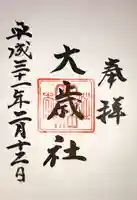 奉拝
大歳社
平成三十一年二月十三日